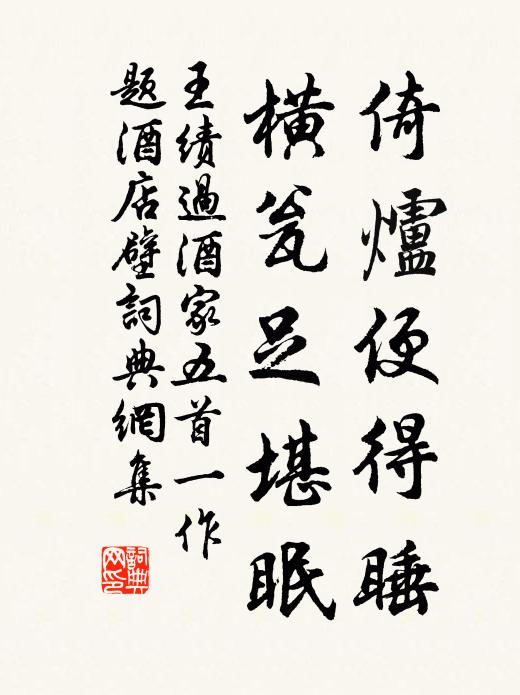 倚爐便得睡
橫瓮足堪眠
王績過酒家五首一作
題酒店壁詞典網集
詞典网印